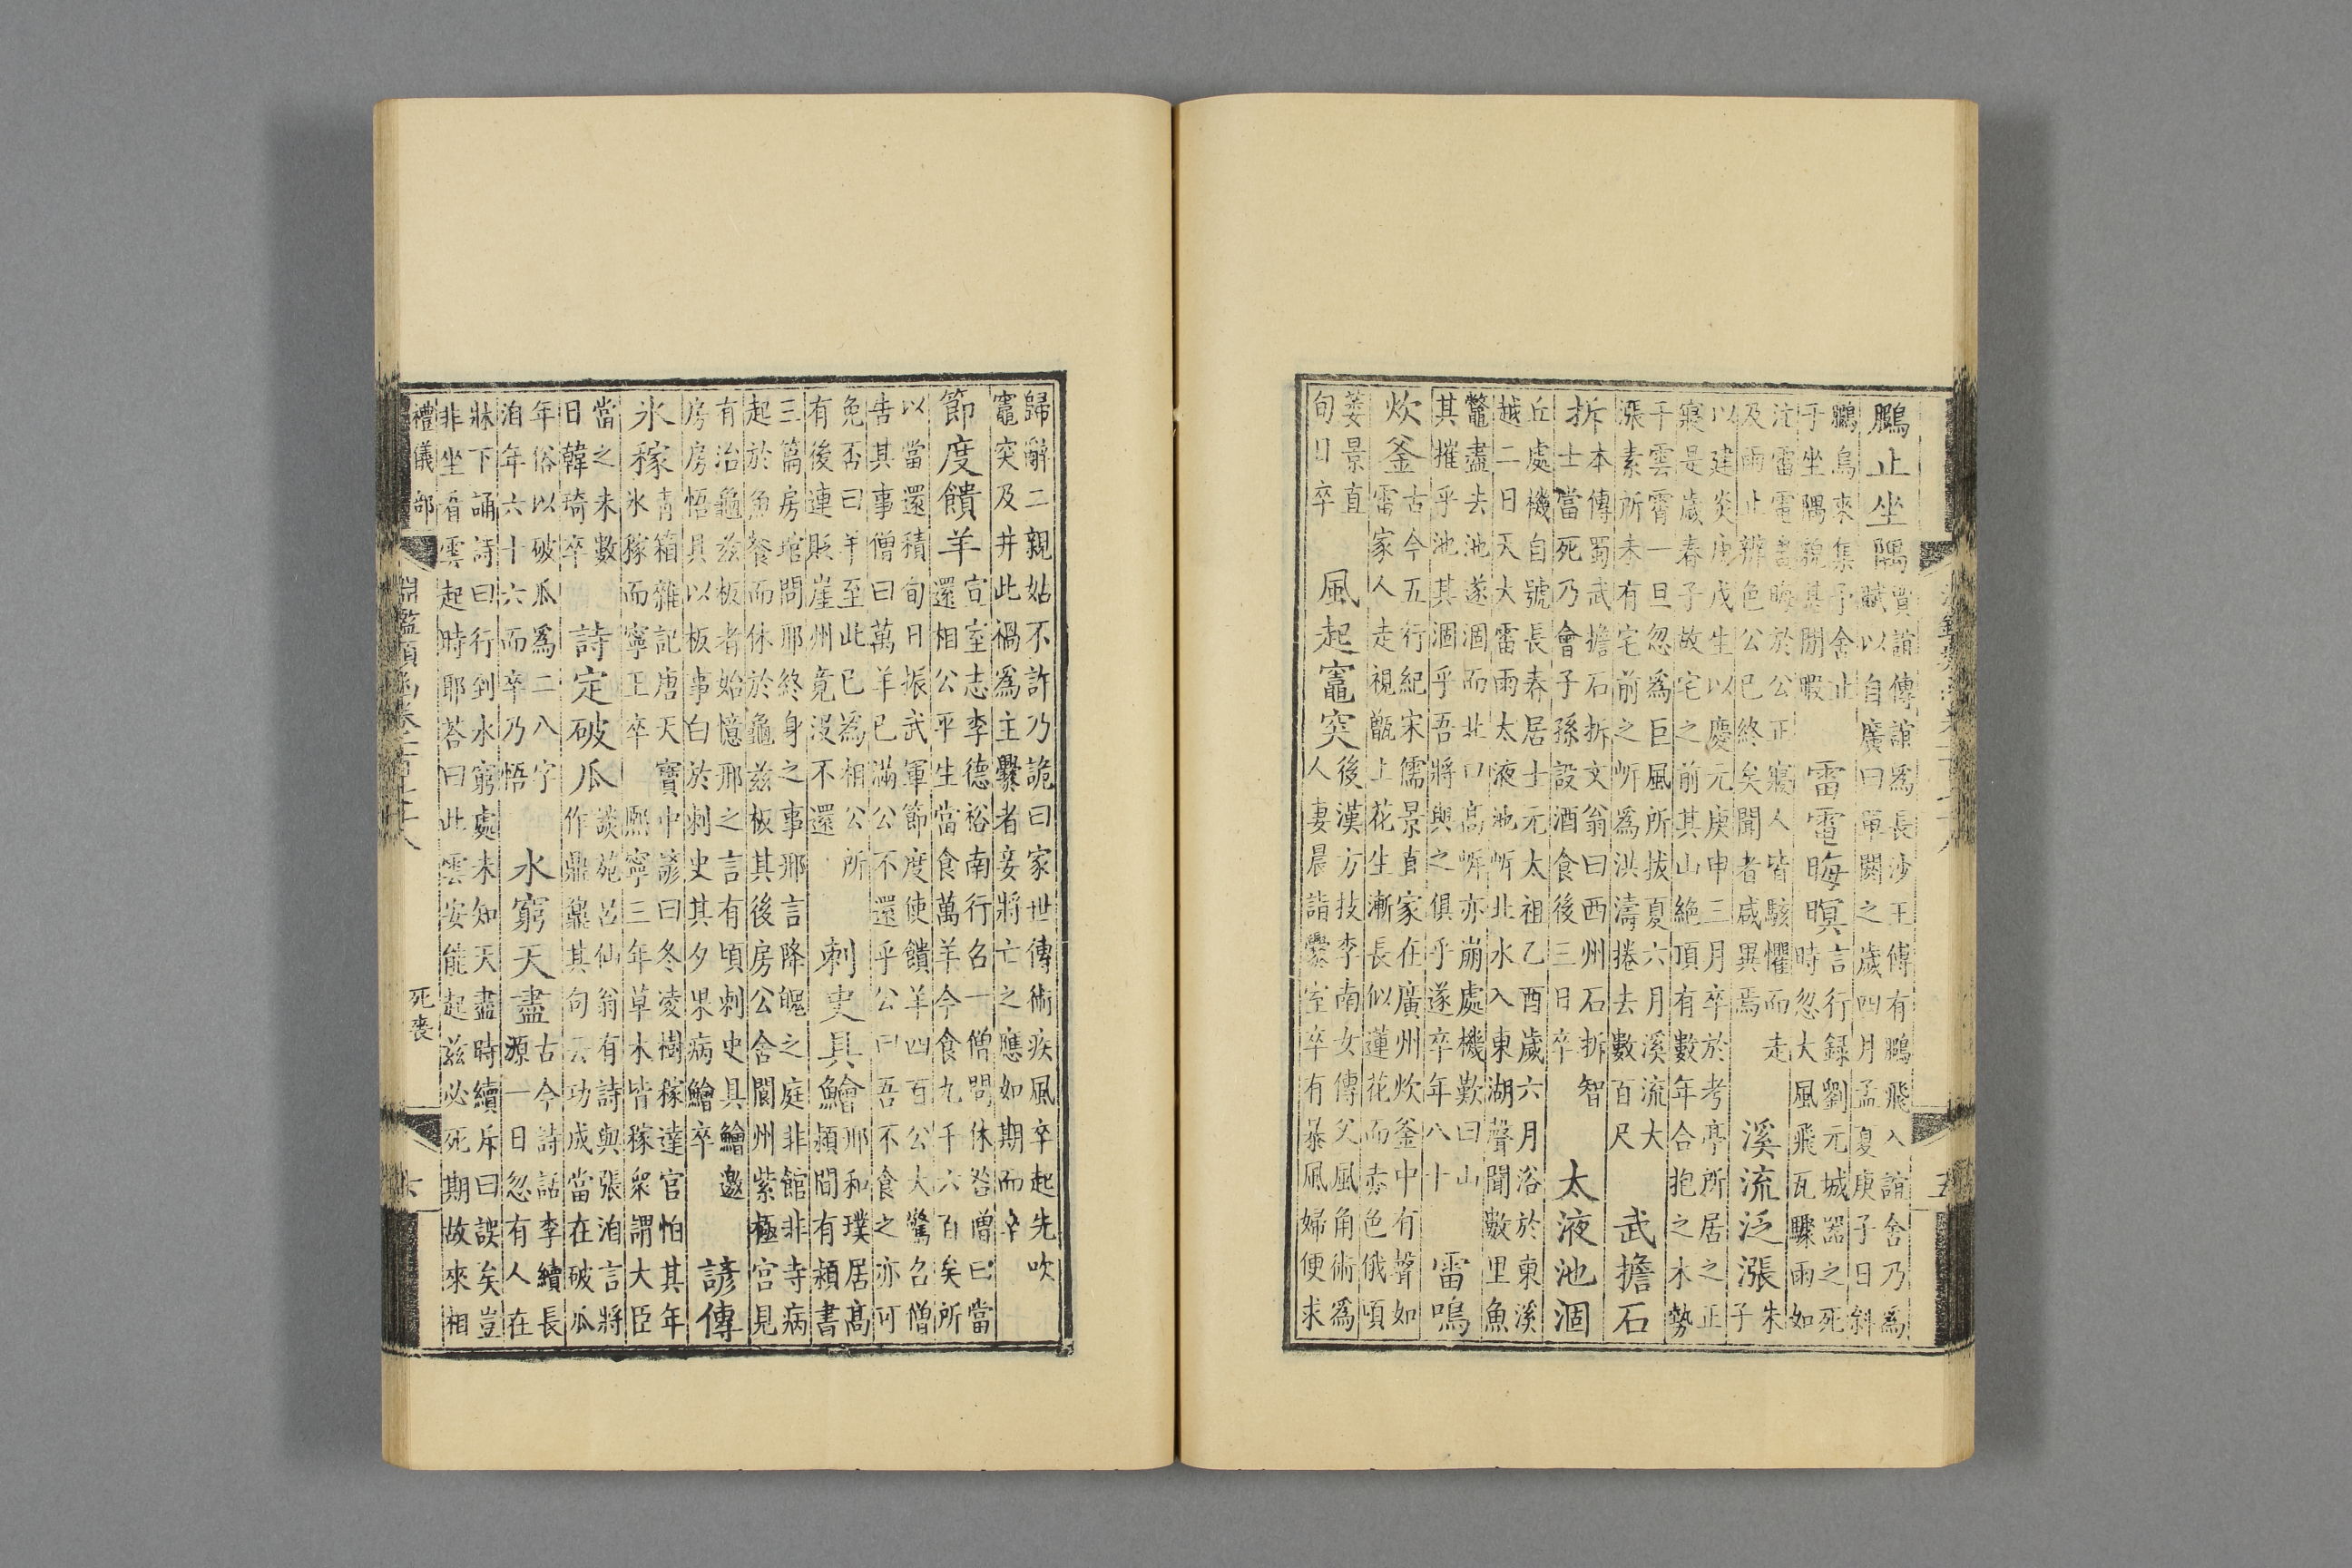 鵩止坐隅賈誼傳誼爲長沙王傅有鵩飛入誼舍乃爲
賦以自廣曰單閼之歲四月孟夏庚子日斜
鵩烏來集予舍止
于坐隅貌甚閒暇
雷電晦暝言行録劉元城器之死
時忽大風飛瓦驟雨如
注雷電晝晦於公正寢人皆駭懼而走
及雨止辨色公已終矣聞者咸異焉
溪流泛漲朱
子
以建炎庚戌生以慶元庚申三月卒於考亭所居之正
寢是歲春子故宅之前其山絶頂有數年合抱之木勢
干雲霄一旦忽爲巨風所拔夏六月溪流大
漲素所未有宅前之㟁爲洪濤捲去數百尺
武擔石
拆本傳蜀武擔石拆文翁曰西州石拆智
士當死乃會子孫設酒食後三日卒
太液池涸
丘處機自號長春居士元太祖乙酉歲六月浴於東溪
越二日天大雷雨太液池㟁北水入東湖聲聞數里魚
鼈盡去池遂涸而北口高㟁亦崩處機歎曰山
其摧乎池其涸乎吾將與之俱乎遂卒年八十
雷鳴
炊釜古今五行紀宋儒景直家在廣州炊釜中有聲如
雷家人走視甑上花生漸長似蓮花而赤色俄頃
萎景直
旬日卒
風起竈突後漢方技李南女傳父風角術爲
人妻晨詣爨室卒有暴風婦便求
五
歸辭二親姑不許乃詭曰家世傳術疾風卒起先吹
竈突及井此禍爲主爨者妾將亡之應如期而卒
節度饋羊宣室志李德裕南行召一僧問休咎僧曰當
還相公平生當食萬羊今食九千六百矣所
以當還積旬日振武軍節度使饋羊四百公大驚召僧
告其事僧曰萬羊已滿公不還乎公曰吾不食之亦可
免否曰羊至此已爲相公所
有後連貶崖州竟沒不還
刺史具鱠邢和璞居高
潁間有潁書
三篇房琯問邢終身之事邢言降魄之庭非館非寺病
起於魚飱而休於龜兹板其後房公舍閬州紫極宮見
有治龜兹板者始憶邢之言有頃刺史具鱠邀
房房悟具以板事白於刺史其夕果病鱠卒
諺傳
氷稼青箱雜記唐天寶中諺曰冬凌樹稼達官怕其年
氷稼而寧王卒 熙寧三年草木皆稼衆謂大臣
當之未數
日韓琦卒
詩定破瓜談苑吕仙翁有詩與張洎言將
作鼎鼐其句云功成當在破瓜
年俗以破瓜爲二八字
洎年六十六而卒乃悟
水窮天盡古今詩話李續長
源一日忽有人在
牀下誦詩曰行到水窮處未知天盡時續斥曰誤矣豈
非坐看雲起時耶荅曰此雲安能起兹必死期故來相
禮儀部 淵鑑類函卷一百七十八 死喪 六